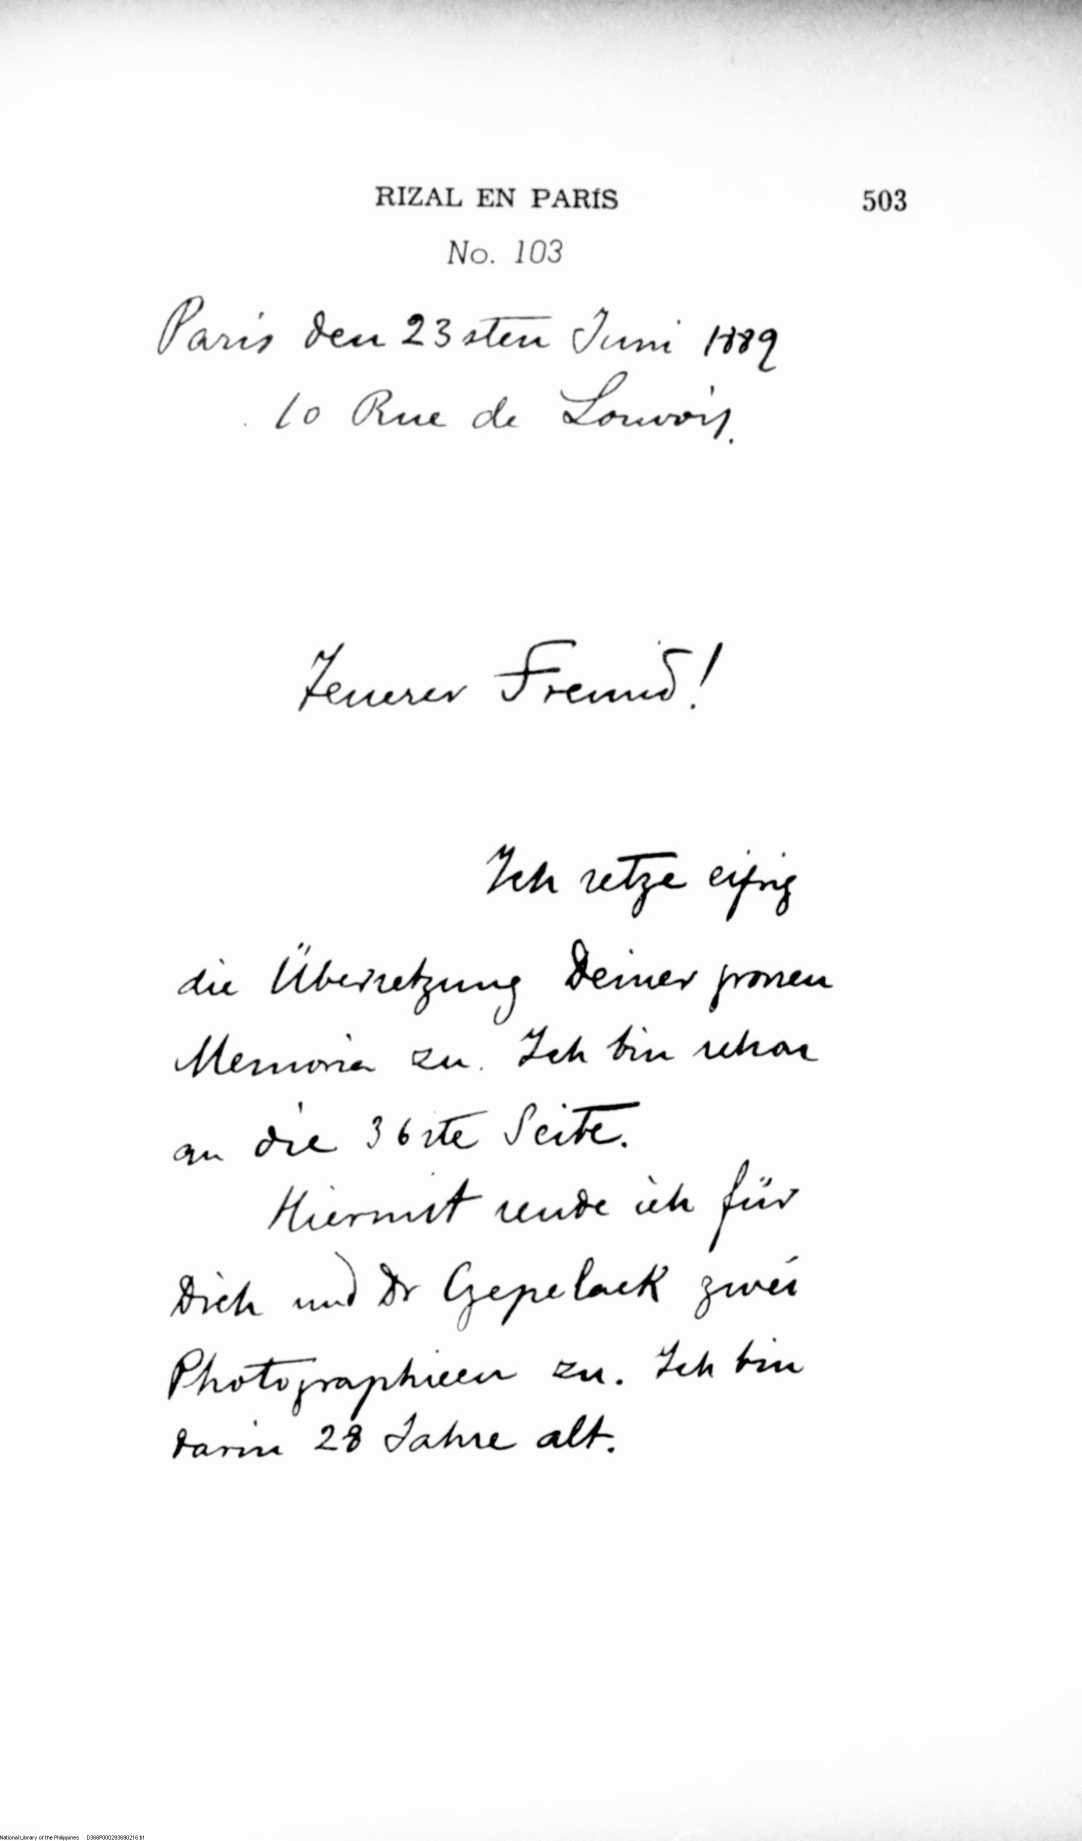 RIZAL EN PARÍS 503
No. 103
Paris den 23sten Juni 1889
10 Rue de Louvois.
Teuerer Freund!
Ich setze eifrig
die Übersetzung Deiner grossen
Memoria zu. Ich bin schon
an die 36ste Seite.
Hiermit sende ich für
Dich und Dr Czepelack zwei
Photographieen zu. Ich bin
darin 28 Jahre alt.
National Library of the Philippines